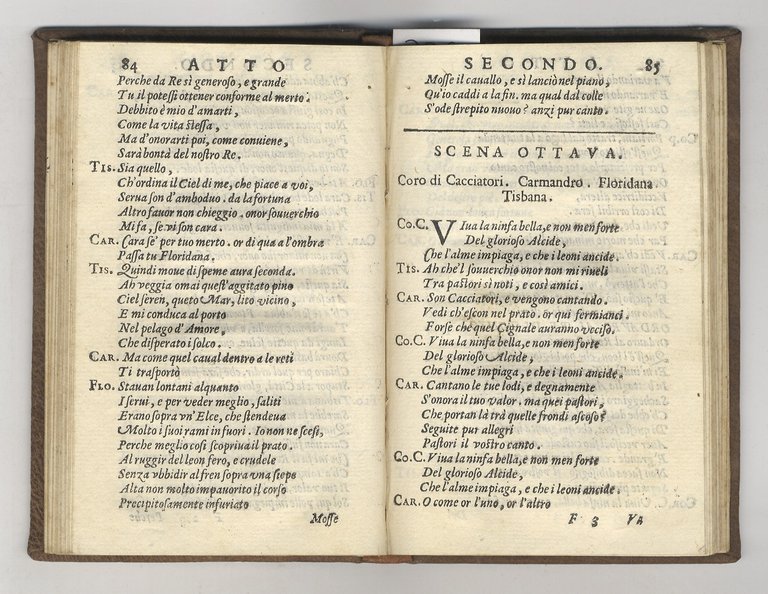 84 ATTO
Perche da Re sì generoso, e grande
Tu il potessi ottener conforme al merto.
Debbito è mio d'amarti,
Come la vita stessa,
Ma d'onorarti poi, come conuiene,
Sarà bontà del nostro Re.
TIS. Sia quello,
Ch'ordina il Ciel di me, che piace a voi,
Serua son d'amboduo. da la fortuna
Altro fauor non chieggio. onor souuerchio
Mi fa, se vi son cara.
CAR. Cara se' per tuo merto. or di qua a l'ombra
Passa tu Floridana,
TIS. Quindi moue di speme aura seconda.
Ah veggia omai quest'aggitato pino
Ciel seren, queto Mar, lito vicino,
E mi conduca al porto
Nel pelago d'Amore,
Che disperato i solco.
CAR. Ma come quel caual dentro a le reti
Ti trasportò
FLO. Stauan lontani alquanto
I serui, e per veder meglio, saliti
Erano sopra vn'Elce, che stendeua
Molto i suoi rami in fuori. Io non ne scesi,
Perche meglio così scopriua il prato.
Al ruggir del leon fero, e crudele
Senza vbbidir al fren sopra vna siepe
Alta non molto impauorito il corso
Precipitosamente infuriato
Mosse
SECONDO. 85
Mosse il cauallo, e sì lanciò nel piano,
Qu'io caddi a la fin. ma qual dal colle
S'ode strepito nuouo? anzi pur canto.
SCENA OTTAVA.
Coro di Cacciatori. Carmandro. Floridana
Tisbana.
Co.C. Viua la ninfa bella, e non men forte
Del glorioso Alcide,
Che l'alme impiaga, e che i leoni ancide.
TIS. Ah che'l souuerchio onor non mi riueli
Tra pastori sì noti, e così amici.
CAR. Son Cacciatori, e vengono cantando.
Vedi ch'escon nel prato. or qui fermianci.
Forse che quel Cignale auranno vcciso.
Co.C. Viua la ninfa bella, e non men forte
Del glorioso Alcide,
Che l'alme impiaga, e che i leoni ancide.
CAR. Cantano le tue lodi, e degnamente
S'onora il tuo valor. ma quei pastori,
Che portan là trà quelle frondi ascoso?
Seguite pur allegri
Pastori il vostro canto.
Co.C. Viua la ninfa bella, e non men forte
Del glorioso Alcide,
Che l'alme impiaga, e che i leoni ancide.
CAR. O come or l'uno, or l'altro
F 3 Vn